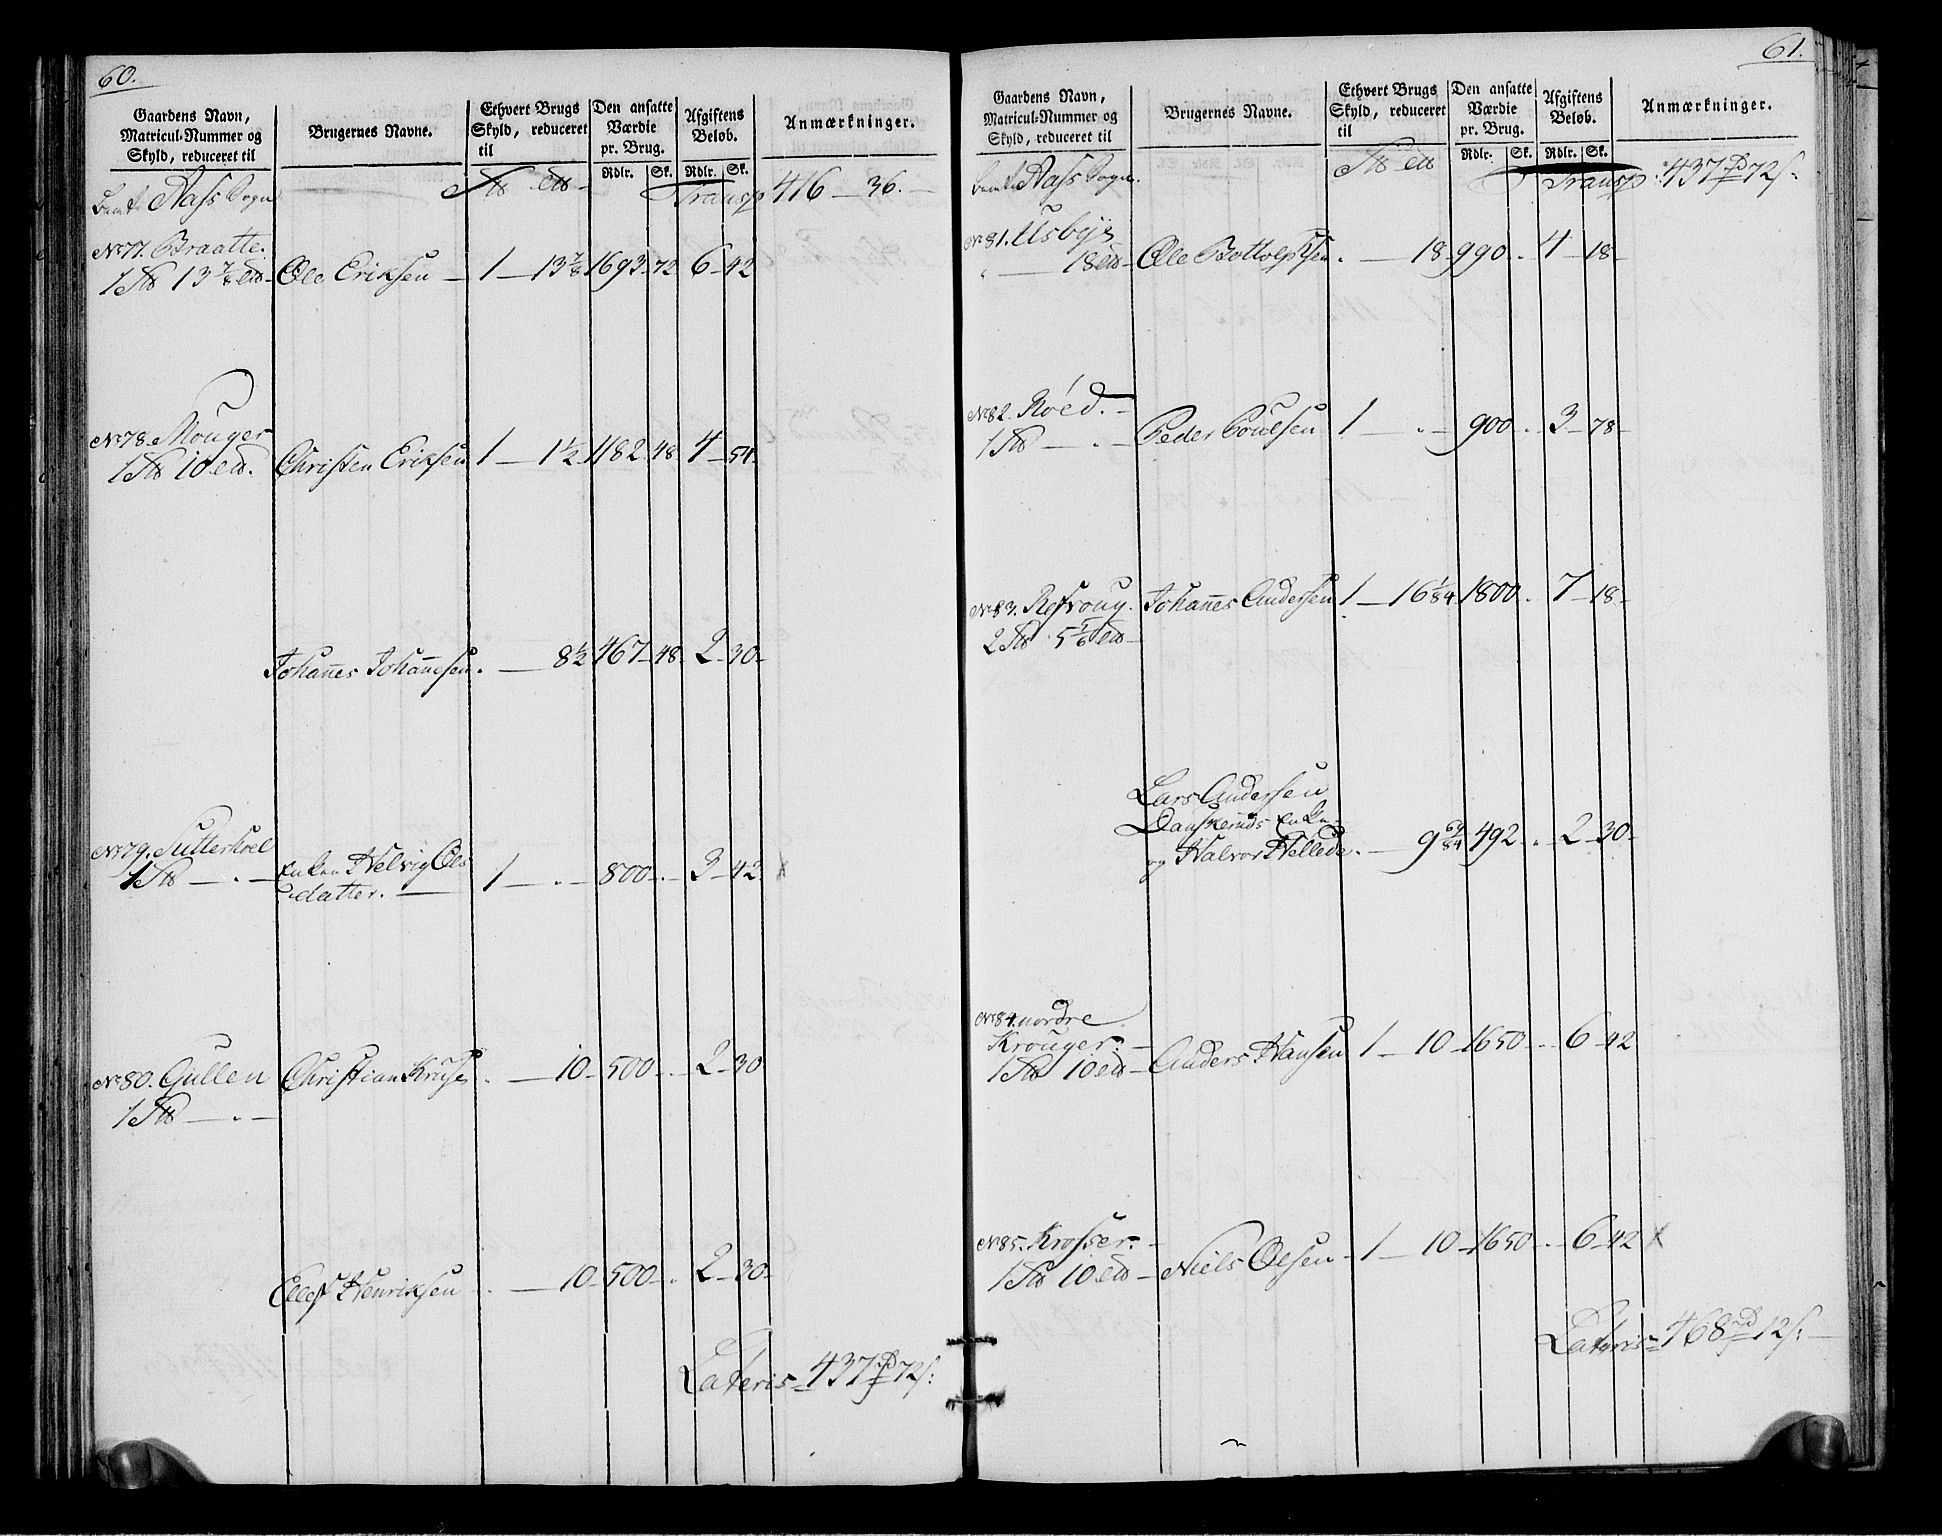 60.
Gaardens Navn, Matricul-Nummer og Skyld, reduceret til
Brugernes Navne.
Ethvert Brugs Skyld, reduceret til
Den ansatte Værdie pr. Brug.
Rdlr. Sk.
Afgiftens Beløb.
Rdlr. Sk.
Anmærkninger.
Aass Sogn Transp 416 — 36. —
No 77. Braatte.
1 13 7/8 Ole Eriksen — 1 — 13 7/8 1693 - 72 6 - 42
No 78. Mouger
1 10 Christen Eriksen 1 — 1 1/2 1182 - 48 4 - 54
Johannes Johannesen . — 8 1/2 467 - 48 2 - 30 -
No 79. Sutterhoel
1 — . — Enken Helvig Ols
datter. — 1 — . — 800 - . - 3 - 42
No 80. Gullen Christian Kruse . — 10 - 500 - . - 2 - 30
1 — . —
Ellef Henriksen . — 10 - 500 - . 2 - 30 -
Lateris 437 72 s:
61.
Gaardens Navn, Matricul-Nummer og Skyld, reduceret til
Brugernes Navne.
Ethvert Brugs Skyld, reduceret til
Den ansatte Værdie pr. Brug.
Rdlr. Sk.
Afgiftens Beløb.
Rdlr. Sk.
Anmærkninger.
Aass Sogn. Transp : 437 72 s:
No 81. Usbye
" — 18 Ole Bottolphsen . — 18 - 990 . 4 - 18 -
No 82. Roed. —
1 — . — Peder Poulsen 1 — . — 900 . 3 - 78 -
No 83. Refsoug. Johannes Andersen 1 — 16 1/84 1800 . 7 - 18 -
2 5 5/6
Lars Andersen
Danskeruds Enke
og Halvor Hellede . — 9 69/84 492 . 2 - 30 -
No 84. nordre
Krouger. —
1 10 — Anders Hansen 1 — 10 - 1650 - . 6 - 42
No 85. Krosser. —
1 10 — Niels Olsen - 1 — 10 - 1650 - . 6 - 42
Lateris 468 12 s: